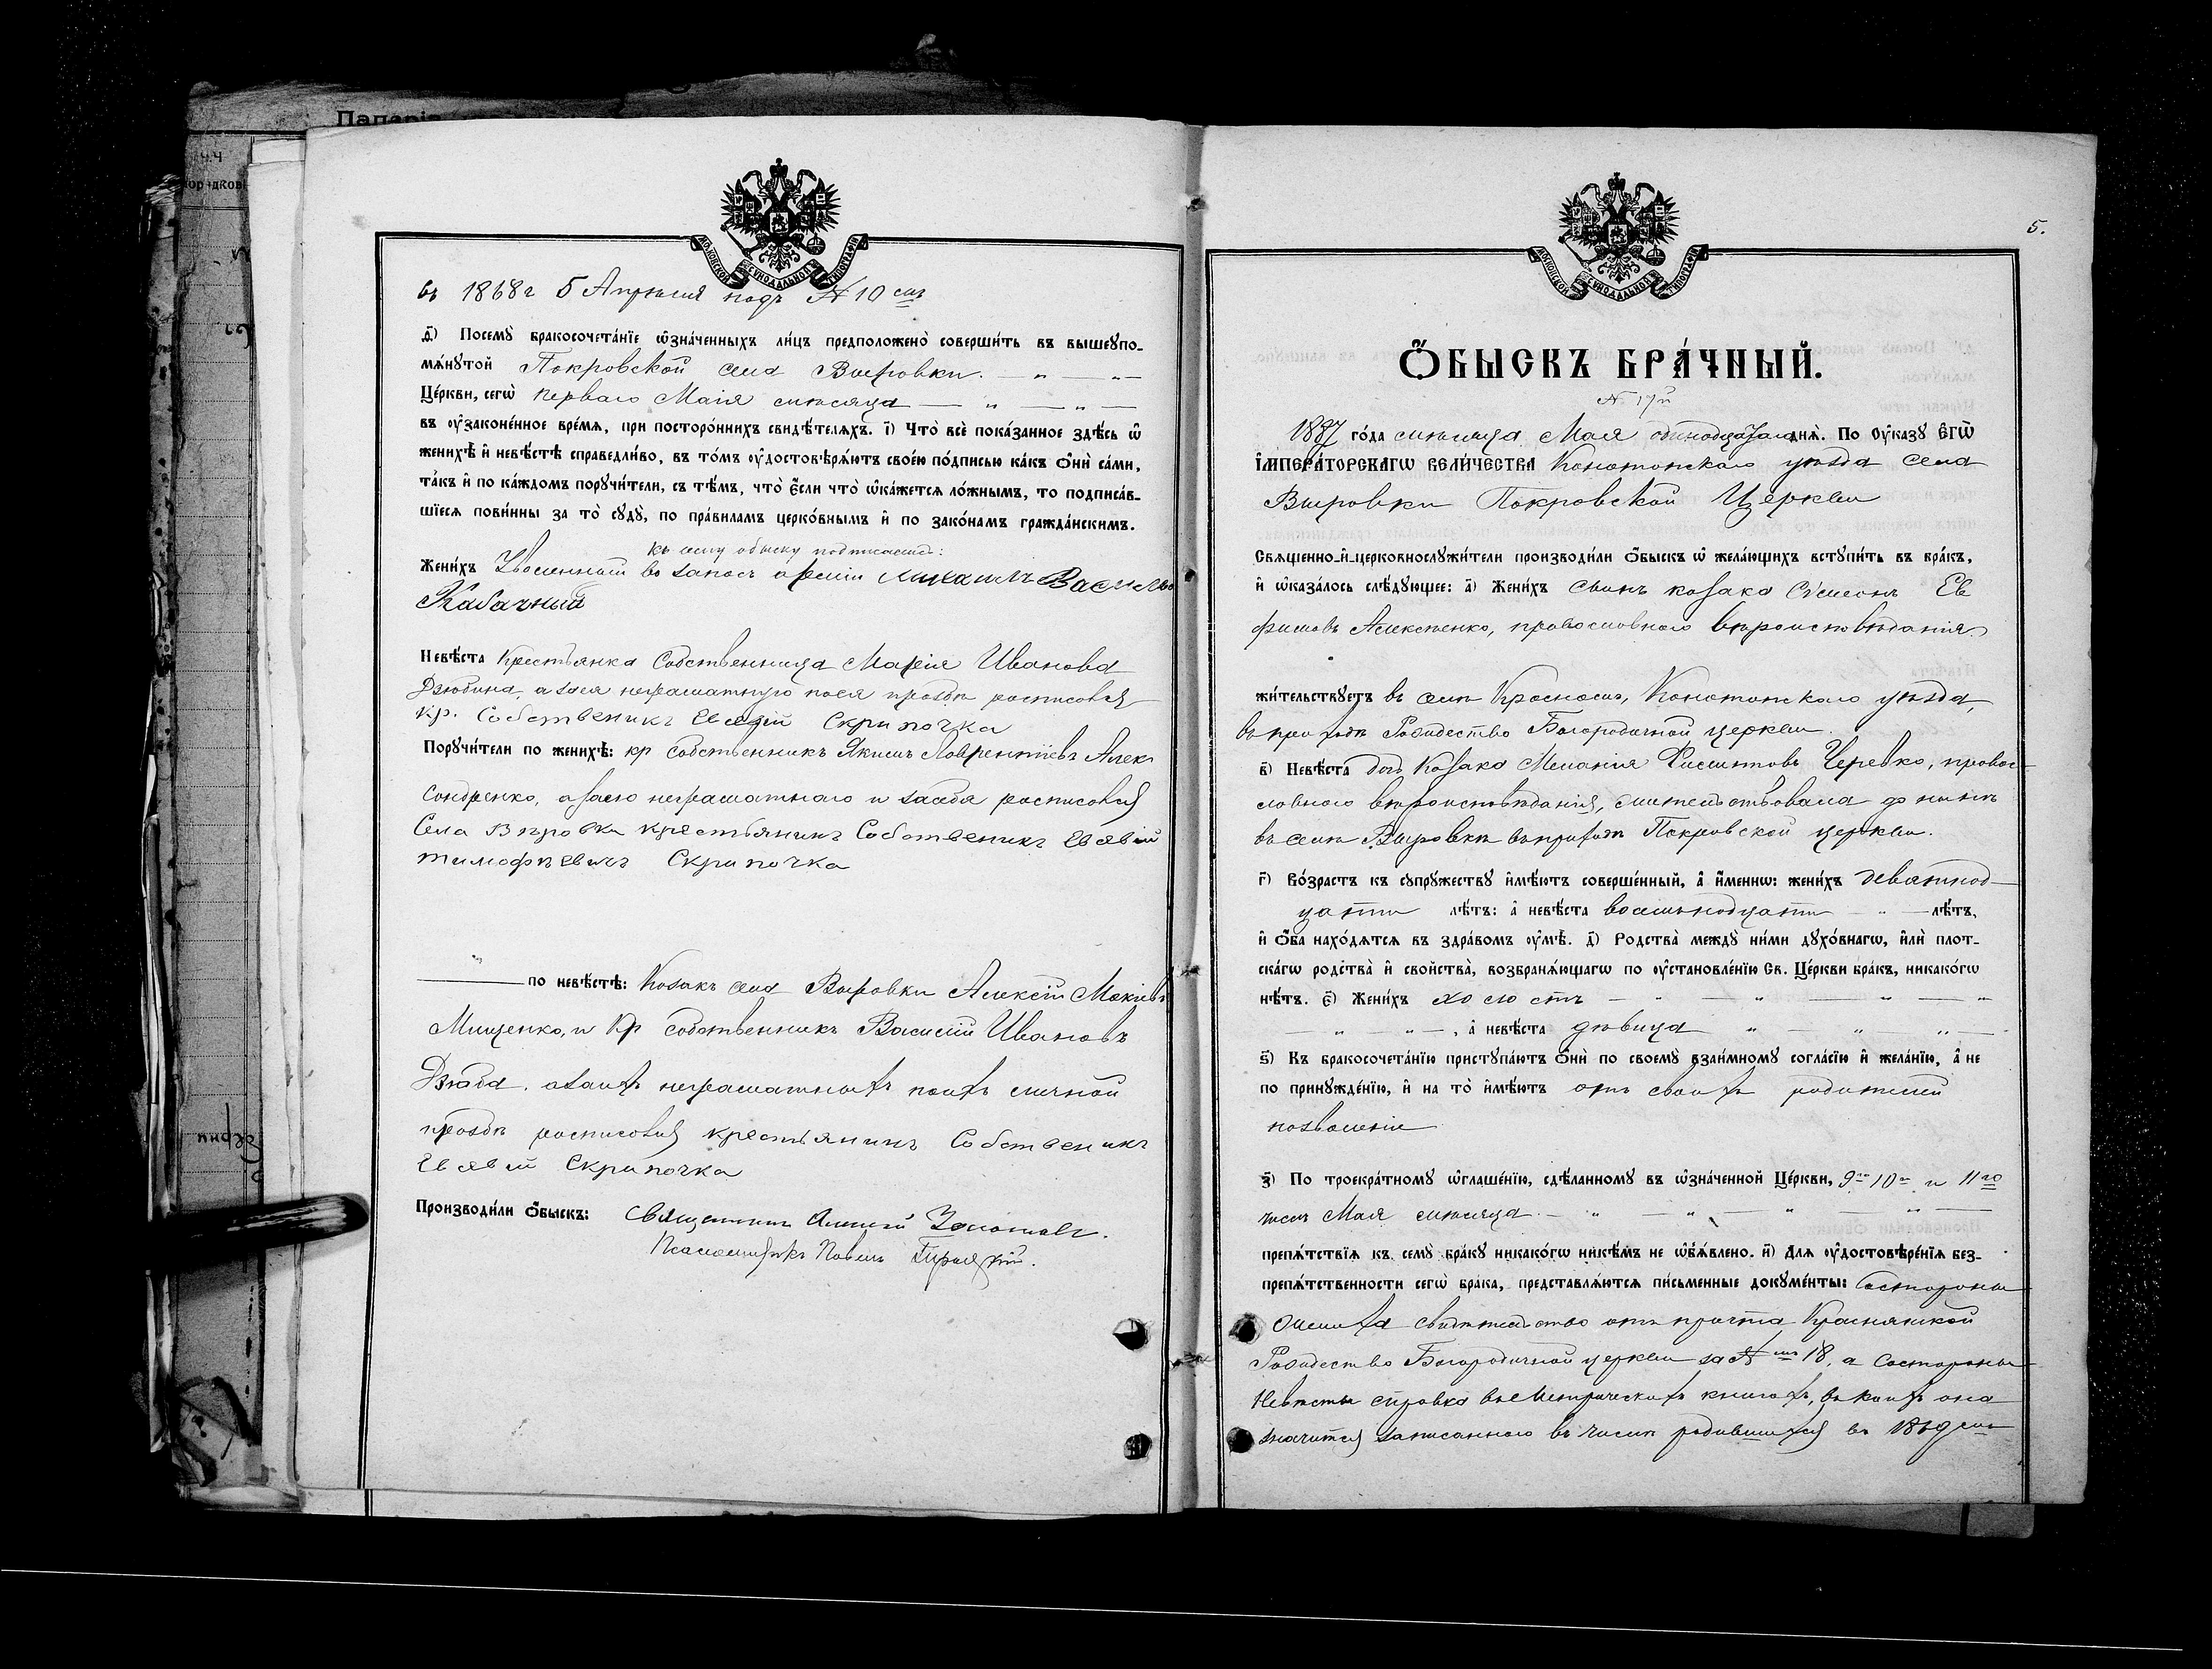 Папері
5.
въ 1868 г 5 Апрѣля подъ № 10 съ
д҃) Посемꙋ̀ бракосочета́нїе ѡ҆зна́ченныхъ ли́цъ предположено̀ соверши́ть въ вышеꙋпо-
мѧ́нꙋтой Покровской села Выровки.
Це́ркви, сегѡ̀ перваго Маія мѣсяца
въ ᲂу҆законе́нное вре́мѧ, при посторо́ннихъ свидѣ́телѧхъ. і҃) Что̀ всѐ пока́занное здѣ́сь ѡ҆
женихѣ̀ и҆ невѣ́стѣ справедли́во, въ то́мъ ᲂу҆достовѣрѧ́ютъ свое́ю по́дписью ка́къ ѻ҆нѝ са́ми,
та́къ и҆ по ка́ждомъ порꙋчи́тели, съ тѣ́мъ, что̀ є҆́сли что̀ ѡ҆ка́жется ло́жнымъ, то подписа́в-
шїесѧ пови́нны за то̀ сꙋдꙋ̀, по пра́виламъ церко́внымъ и҆ по зако́намъ гражда́нскимъ.
къ сему обыску подписались:
Жени́хъ Уволенный въ запасъ арміи Михаилъ Василь
Кабачный
Невѣ́ста Крестьянка Собственница Марія Иванова
Дзюбина, а за ея неграмотную по ея прозьбѣ росписовся
кр. Собственикъ Евсевій Скрипочка
Порꙋчи́тели по женихѣ̀: кр собственникъ Якимъ Лаврентіевъ Алек
сондренко, а за его неграмотнаго и засебя росписовся
Села Выровки крестьянинъ Собственикъ Евсевій
тимофѣевичъ Скрипочка
по невѣ́стѣ: Козакъ села Выровки Алексѣй
Мищенко, и Кр собственникъ Василій Ивановъ
Дзюба. а заихъ неграмотныхъ поихъ личной
прозьбѣ росписовся крестьянинъ Собственикъ
Евсевій Скрипочка
Производи́ли Ѻ҆́быскъ: Священникъ Алексѣй
Псаломщикъ Павелъ
Ѻ҆́БЫСКЪ БРА́ЧНЫЙ.
№ 17й
1887 го́да мѣсяца Мая одинадцатаго днѧ̀. По Оу҆ка́зꙋ Є҆ГѠ̀
І҆МПЕРА́ТОРСКАГѠ ВЕЛИ́ЧЕСТВА Конотопского уѣзда села
Выровки Покровской Церкви
Свѧще́нно-и҆-церковнослꙋжи́тели производи́ли ѻ҆́быскъ ѡ҆ жела́ющихъ встꙋпи́ть въ бра́къ,
и҆ ѡ҆каза́лось слѣ́дꙋющее: а҃) Жени́хъ сынъ козака Сѵмеонъ Ев
фимовъ Алексѣенко, православного вѣроисповѣданія
жи́тельствꙋетъ въ селѣ Красномъ, Конотопского уѣзда,
въ приходѣ Рождество Богородичной церкви.
в҃) Невѣ́ста дочь Козака Меланія Череvко, право
славного вѣроисповѣданія, жительствовала до нынѣ
въ селѣ Выровкѣ въ приходѣ Покровской церкви.
г҃) Во́зрастъ къ сꙋпрꙋ́жествꙋ и҆мѣ́ютъ соверше́нный, а҆ и҆́меннѡ: жени́хъ девятнад-
цати лѣ́тъ: а҆ невѣ́ста восемнадцати лѣ́тъ,
и҆ ѻ҆́ба нахо́дѧтсѧ въ здра́вомъ ᲂу҆мѣ̀. д҃) Родства̀ междꙋ̀ ни́ми дꙋхо́внагѡ, и҆лѝ плот-
ска́гѡ родства̀ и҆ сво́йства̀, возбранѧ́ющагѡ по ᲂу҆становле́нїю Св. Це́ркви бра́къ, никако́гѡ
нѣ́тъ. є҃) Жени́хъ холостъ
, а҆ невѣ́ста дѣвица
ѕ҃) Къ бракосочета́нїю пристꙋпа́ютъ ѻ҆нѝ по своемꙋ̀ взаи́мномꙋ согла́сїю и҆ жела́нїю, а҆ не
по принꙋжде́нїю, и҆ на то̀ и҆мѣ́ютъ отъ своихъ родителей
позволеніе
з҃) По троекра́тномꙋ ѡ҆глаше́нїю, сдѣ́ланномꙋ въ ѡ҆зна́ченной Це́ркви, 9го 10го и 11го
числъ Мая мѣсяца.
препѧ́тствїѧ къ семꙋ̀ бра́кꙋ никако́гѡ ники́мъ не ѡ҆б̾ѧ́влено. и҃) Длѧ ᲂу҆достовѣре́нїѧ без-
препѧ́тственности сегѡ̀ бра́ка, представлѧ́ютсѧ пи́сьменные докꙋме́нты: Состороны
жениха свидѣтельство отъ причта Краснянской
Рождество Богородичной церкви за № 18, а Состороны
Невѣсты справка въ Метрическихъ книгахъ, въ коихъ она
значится записанною въ числѣ родившихся въ 1869 мъ